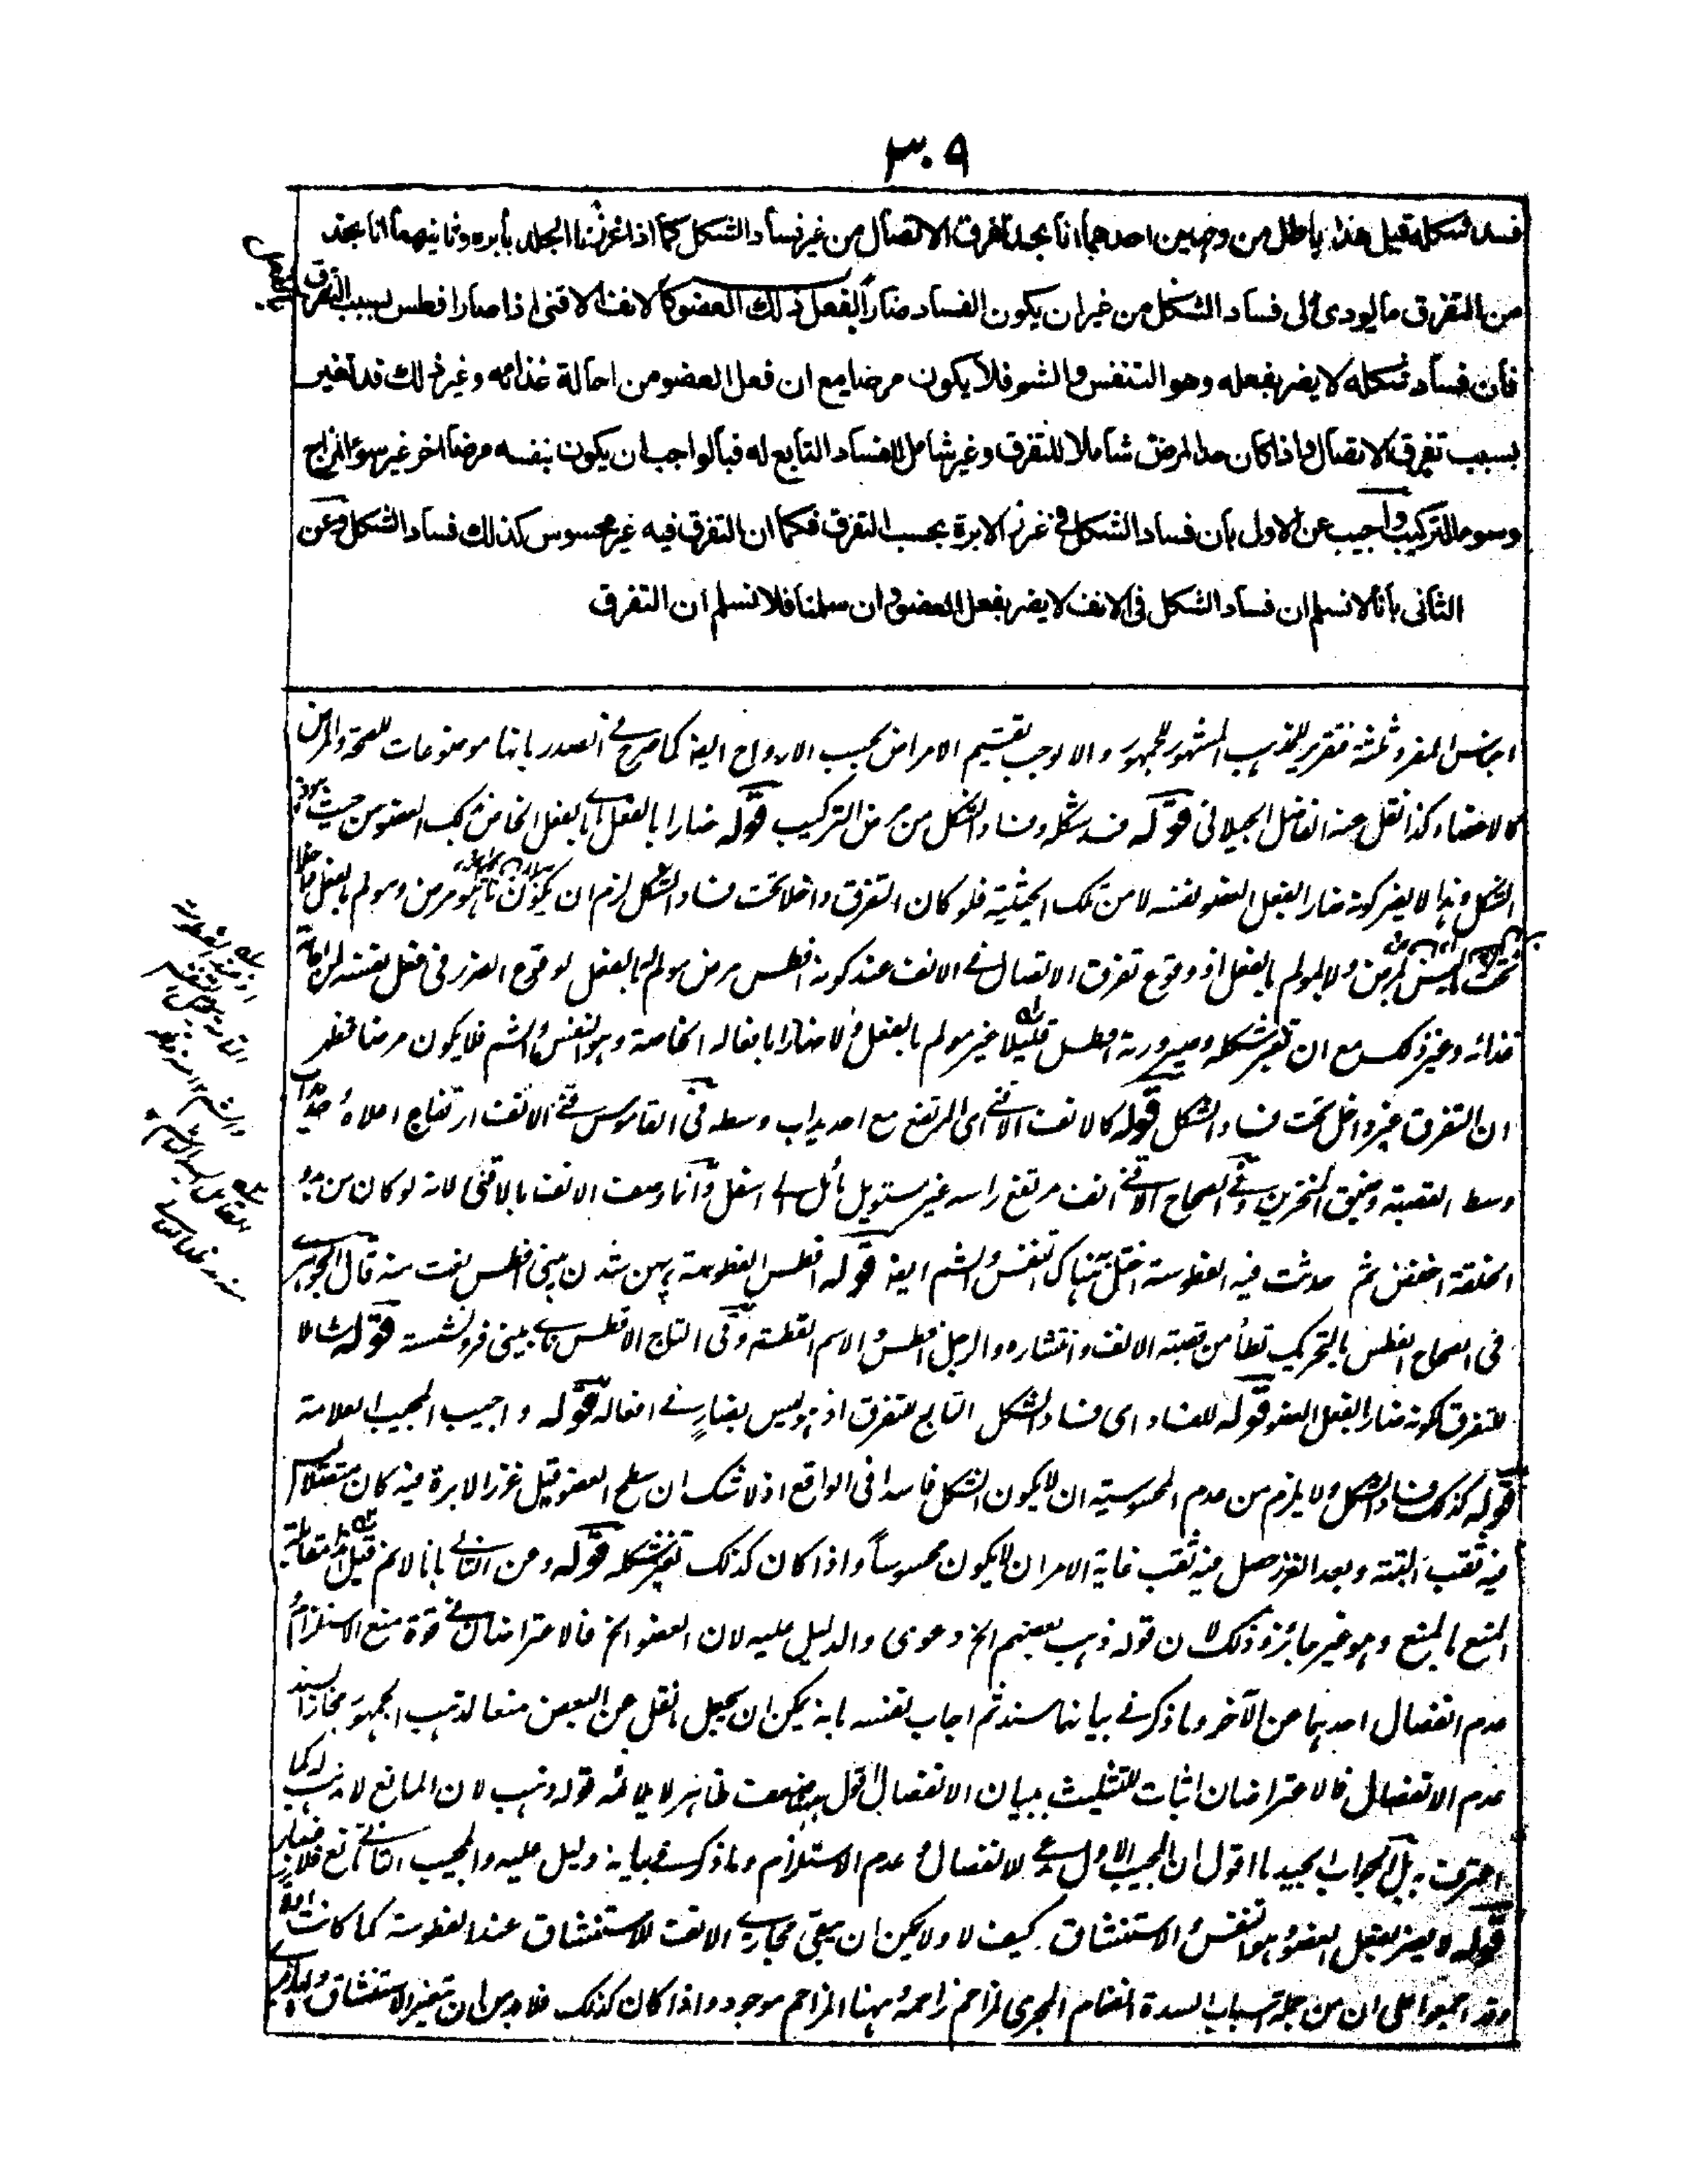 ٣٠٩
فسد شكله قيل هذا باطل من وجهين احدهما انا نجد تفرق الاتصال من غير فساد الشكل كما اذا غرزنا الجلد بابره وثانيهما انا نجد
من التفرق ما يودى الى فساد الشكل من غير ان يكون الفساد ضارا بفعل ذلك العضو كالانف الاقنى اذا صار افطس بسبب التفرق
فان فساد شكله لا يضر بفعله وهو التنفس والشم فلا يكون مرضا مع ان فعل العضو من احالة غذائه وغير ذلك قد تغير
بسبب تفرق الاتصال واذا كان حد المرض شاملا للتفرق وغير شامل للفساد التابع له فبالواجب ان يكون بنفسه مرضا اخر غير سوء المزاج
وسوء التركيب واجيب عن الاول بان فساد الشكل فى غرز الابرة بحسب التفرق فكما ان التفرق فيه غير محسوس كذلك فساد الشكل وعن
الثانى بانا لا نسلم ان فساد الشكل فى الانف لا يضر بفعل العضو وان سلمنا فلا نسلم ان التفرق
اجناس المفرد ثلثة فتقرير للمذهب المشهور للجمهور والا لوجب تقسيم الامراض بحسب الارواح ايضا كما صرح فى الصدر بانها موضوعات للصحة والمرض
كالاعضاء كذا نقل عنه الفاضل الجيلانى قوله فسد شكله وفساد الشكل من مرض التركيب قوله ضارا بالفعل اى بالفعل الخاص بذلك العضو من حيث
الشكل وهذا لا يضر كونه ضارا لفعل العضو لنفسه لا من تلك الحيثية فلو كان التفرق داخلا تحت فساد الشكل لزم ان يكون مرض ومولم بالفعل
تحت ليس بمرض ولا بمولم بالفعل اذ وقوع تفرق الاتصال فى الانف عند كونه افطس مرض مولم بالفعل لوقوع الضرر فى فعل نفسه من احالة
غذائه وغير ذلك مع ان تغير شكله وصيرورته افطس قليلا غير مولم بالفعل ولا ضارا بافعاله الخاصة وهو التنفس والشم فلا يكون مرضا فظهر
ان التفرق غير داخل تحت فساد الشكل قوله كالانف الاقنى اى المرتفع مع احديداب وسطه فى القاموس قنى الانف ارتفاع اعلاه واحديداب
وسط القصبة وضيق المنخرين وفى الصحاح الاقنى انف مرتفع راسه غير مستو بل مائل الى اسفل وانما وصف الانف بالاقنى لانه لو كان من بدو
الخلقة اخفض ثم حدثت فيه الفطوسة اختل هناك التنفس والشم ايضا قوله افطس الفطوسة پهن شدن بينى افطس نعت منه قال الجوهرى
فى الصحاح الفطس بالتحريك تطأمن قصبة الانف وانتشاره والرجل افطس والاسم الفطسة وفى التاج الافطس بينى فرونشسته قوله شاملا
للتفرق لكونه ضارا لفعل العضو قوله للفساد اى فساد الشكل التابع للتفرق اذ هو ليس بضار فى افعاله قوله واجيب المجيب العلامة
قوله كذلك فساد الشكل ولا يلزم من عدم المحسوسية ان لا يكون الشكل فاسدا فى الواقع اذ لا شك ان سطح العضو قبل غرز الابرة فيه كان متصلا ليس
فيه ثقب البتة وبعد الغرز حصل فيه ثقب غاية الامر ان لا يكون محسوسا واذا كان كذلك تغير شكله قوله وعن الثانى بانا لا نم قيل هذا مقابلة
المنع بالمنع وهو غير جائز وذلك لان قوله ذهب بعضهم الخ دعوى والدليل عليه لان العضو الخ فالاعتراضان فى قوة منع الاستلزام
عدم انفصال احدهما عن الآخر وما ذكر فى بيانها سند ثم اجاب بنفسه بانه يمكن ان يجعل ما نقل عن البعض منعا لمذهب الجمهور مجازا لسند
عدم الانفصال فالاعتراضان اثبات للتثليث ببيان الانفصال اقول ضعف ظاهر لا يلائمه قوله ذهب لان المانع لا مذهب له كما
اعترف به بل الجواب الجيد ما اقول ان المجيب الاول مدعى للانفصال وعدم الاستلزام وما ذكر فى بيانه دليل عليه والمجيب الثانى مانع
قوله لا يضر بفعل العضو وهو التنفس والاستنشاق كيف لا ولا يمكن ان يبقى مجارى الانف للاستنشاق عند الفطوسة كما كانت
وقد اجمعوا على ان من جملة اسباب السدة انضمام المجرى لمزاحم زاحمه وههنا المزاحم موجود واذا كان كذلك فلا بد من ان يتغير الاستنشاق